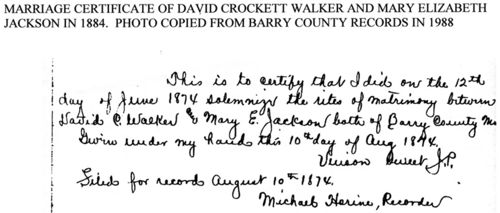 MARRIAGE CERTIFICATE OF DAVID CROCKETT WALKER AND MARY ELIZABETH
JACKSON IN 1884. PHOTO COPIED FROM BARRY COUNTY RECORDS IN 1988
This is to certify that I did on the 12th
day of June 1874 solemnize the rites of matrimony between
David C. Walker & Mary E. Jackson both of Barry County Mo
Given under my hand this 10th day of Aug 1874.
Vinson Sweet J.P.
Filed for record August 10th 1874.
Michael Horine, Recorder